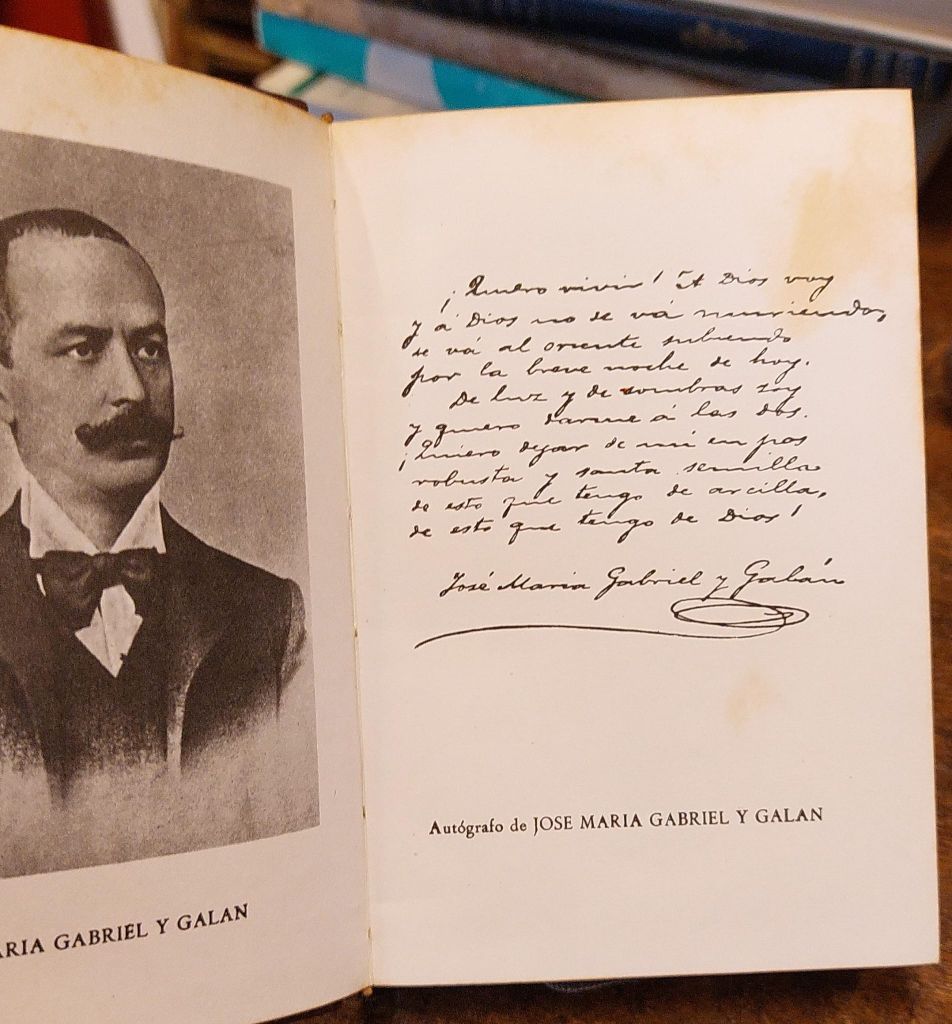 ARIA GABRIEL Y GALAN
¡Quiero vivir! A Dios voy
y á Dios no se vá muriendo,
se vá al oriente subiendo
por la breve noche de hoy.
De luz y de sombras soy
y quiero darme á las dos.
¡Quiero dejar de mí en pos
robusta y santa semilla
de esto que tengo de arcilla,
de esto que tengo de Dios!
José Maria Gabriel y Galán
Autógrafo de JOSE MARIA GABRIEL Y GALAN